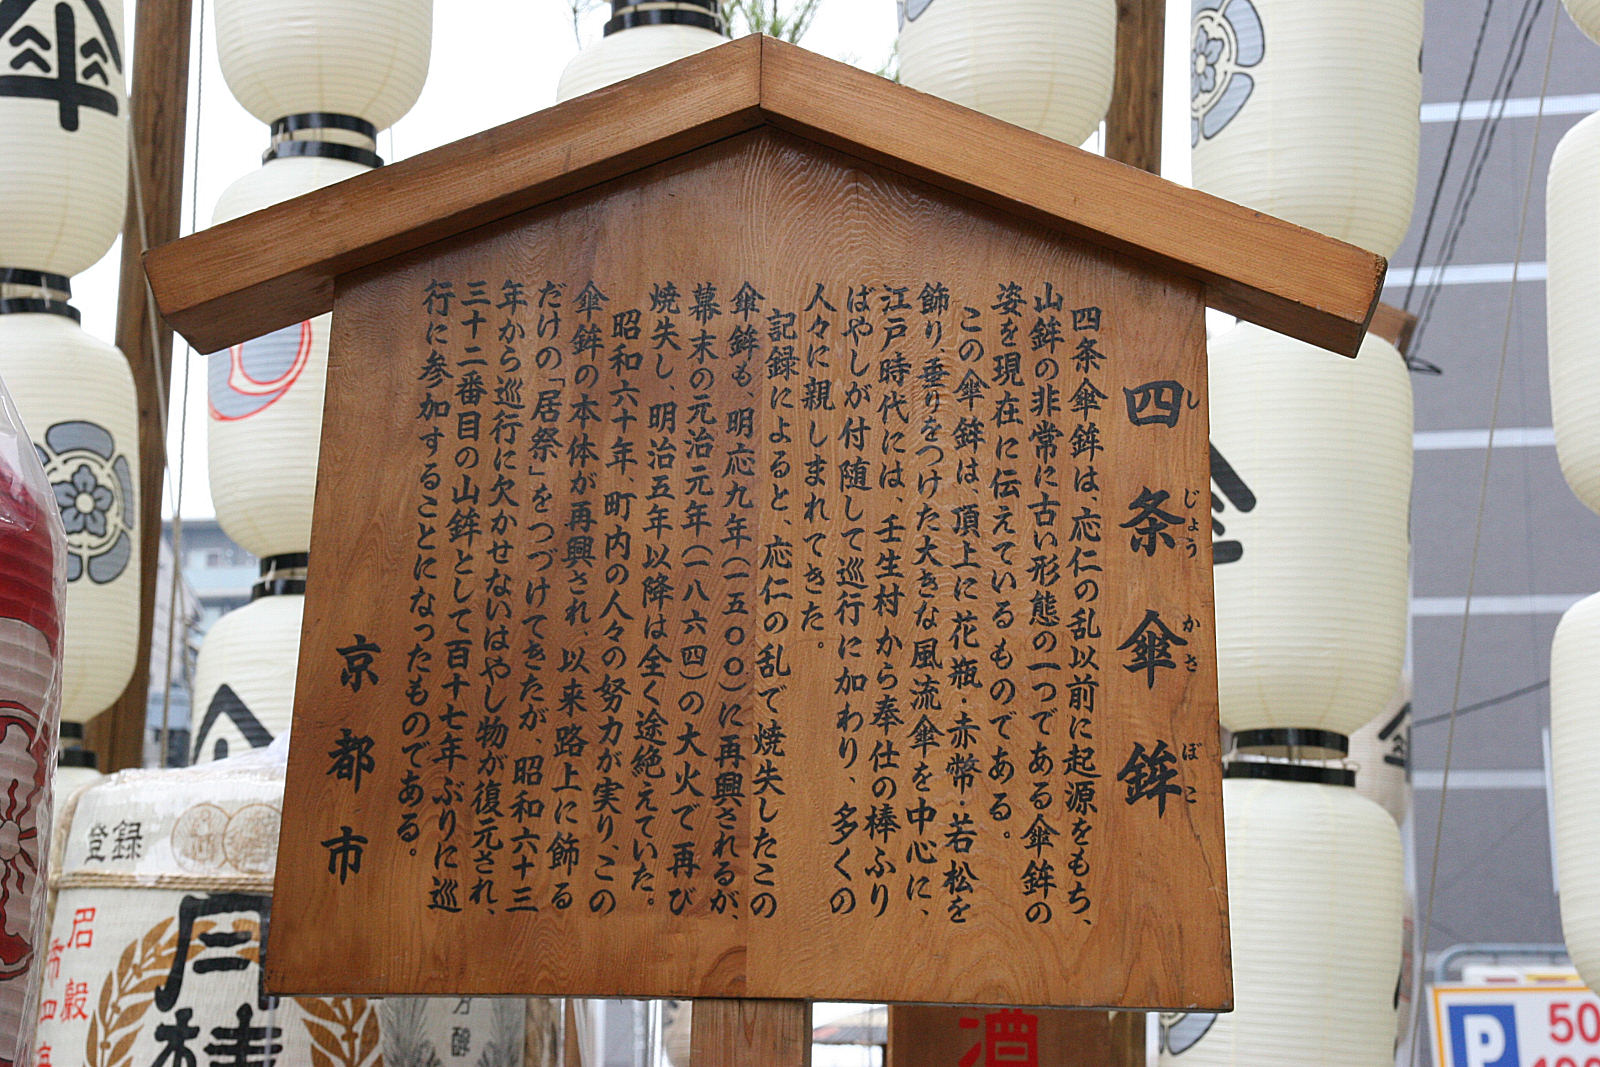 四条傘鉾
しじょうかさぼこ
四条傘鉾は、応仁の乱以前に起源をもち、
山鉾の非常に古い形態の一つである傘鉾の
姿を現在に伝えているものである。
この傘鉾は、頂上に花瓶・赤幣・若松を
飾り、垂りをつけた大きな風流傘を中心に、
江戸時代には、壬生村から奉仕の棒ふり
ばやしが付随して巡行に加わり、多くの
人々に親しまれてきた。
記録によると、応仁の乱で焼失したこの
傘鉾も、明応九年(一五〇〇)に再興されるが、
幕末の元治元年(一八六四)の大火で再び
焼失し、明治五年以降は全く途絶えていた。
昭和六十年、町内の人々の努力が実り、この
傘鉾の本体が再興され、以来路上に飾る
だけの「居祭」をつづけてきたが、昭和六十三
年から巡行に欠かせないはやし物が復元され、
三十二番目の山鉾として百十七年ぶりに巡
行に参加することになったものである。
京都市
傘
登録
月桂
酒
P
50